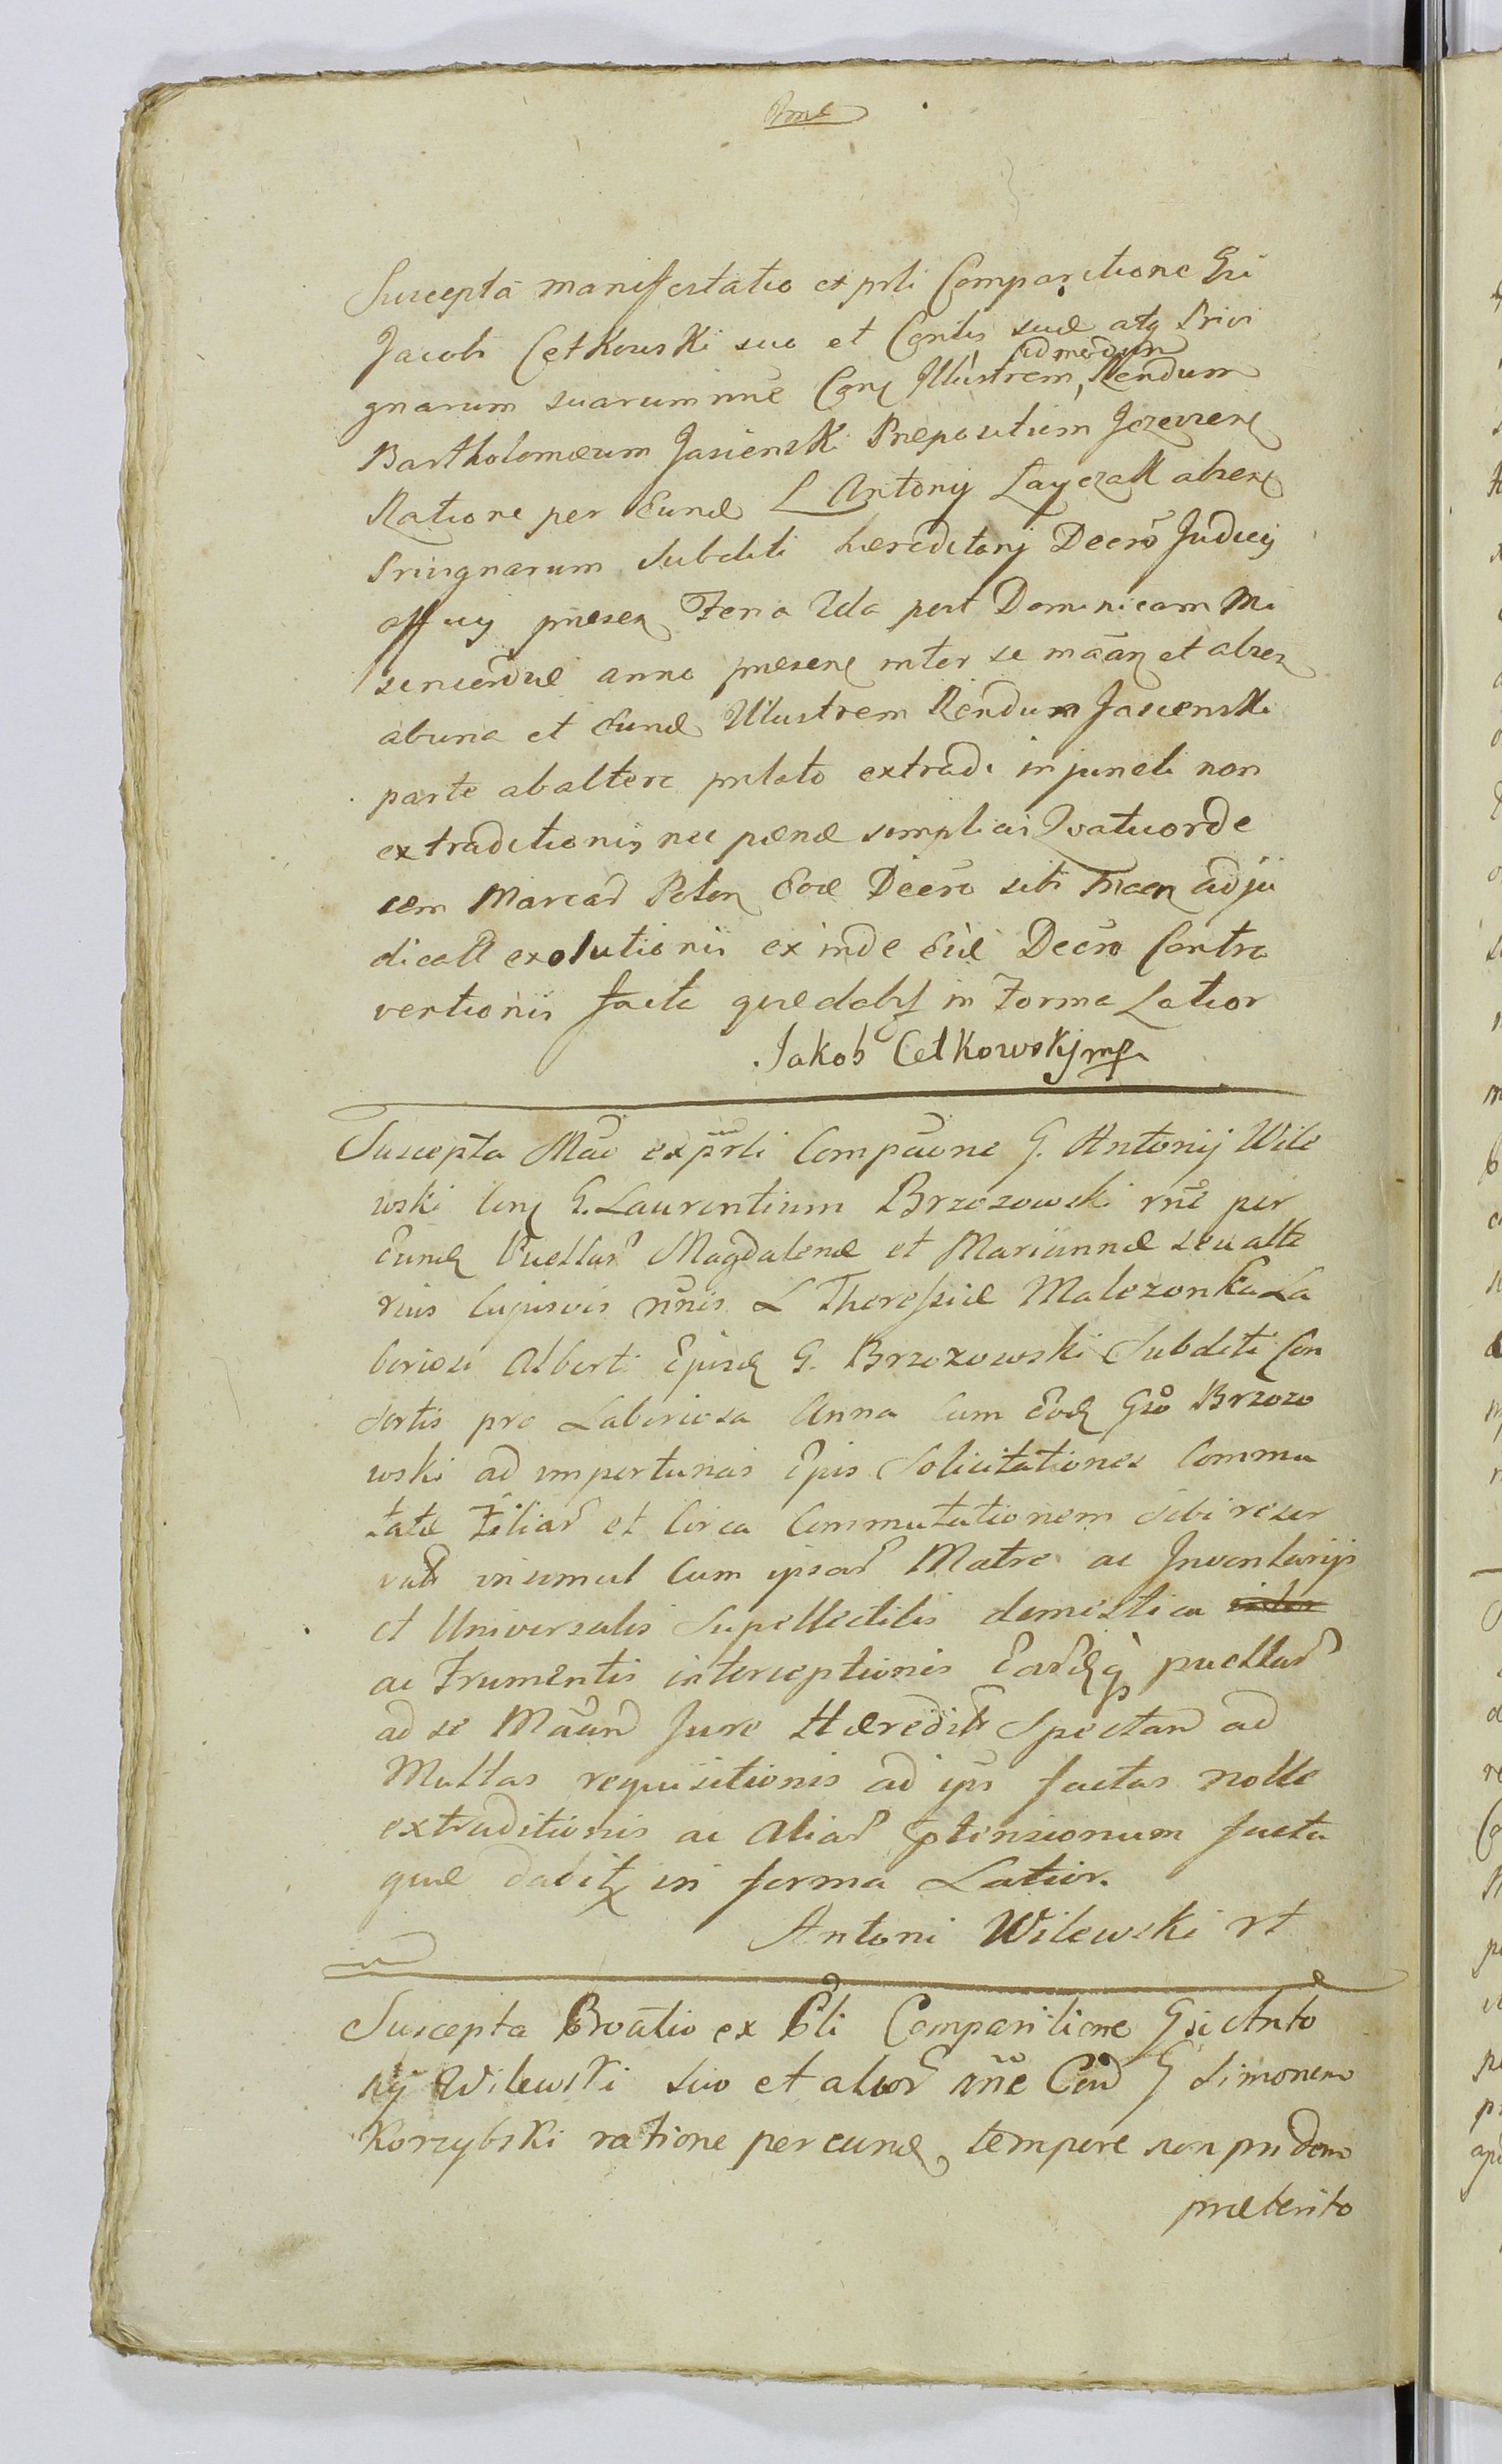 Suscepta manifestatio ex prli Comparitione Gsi
Jacobi Cetkowski suo et Cortis suæ atq Privi
gnarum suarum nne Cong Illustrem admodum Rendum
Bartholomæum Jasienski Præpositum Jezevien
Ratione per Eund L Antonij Layczak absen
Privignarum Subditi hæreditarij Decro Judicij
officij præsen Feria 2da post Dominicam Mi
sericordiæ anno præsen inter se mãan et absen
ab una et Eund Illustrem Rendum Jasienski
parte ab altera prlato extradi injuncti non
extraditionis nec pænæ simplicis Quatuorde
cem Marcar Polon Eod Decro sibi Maen adju
dicatt exolutionis exinde Eid Decro Contra
ventionis facta quæ dabit in Forma Latior
Jakob Cetkowskj mp
Suscepta Mão ex prli Compãone G. Antonij Wile
wski Cong G. Laurentium Brzozowski rne per
Eund Puellar Magdalenæ et Mariannæ seu alte
rius cujusvis nnis L Theresiæ Malczonka La
boriosi Alberti Ejusd G. Brzozowski Subditi Con
sortis pro Laboriosa Anna Cum Eod Gso Brzozo
wski ad importunas Ejus Solicitationes Commu
tatæ Filiar et Circa Commutationem sibi reser
vatt in simul Cum ipsar Matre ac Inventarijs
et Universalis Supellectilis domestica
ac Frumentis interceptionis Eardq puellar
ad se Mãan Jure Hæredit Spectan ad
Multas requisitionis ad ips factas nolle
extraditionis ac Aliar ptensionum facta
quæ dabit in forma Latior.
Antoni Wilewski rt
Suscepta Proatio ex Pli Comparitione Gsi Anto
nij Wilewski suo et alior nne Con G Simonem
Korzybski ratione per eund tempore non pridem
præterito